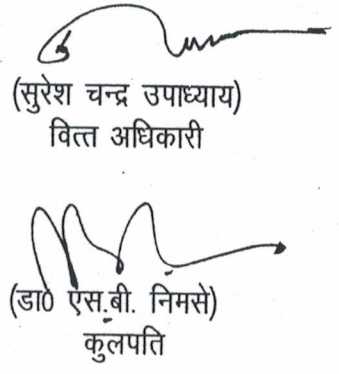 (सुरेश चन्द्र उपाध्याय)
वित्त अधिकारी
(डा0 एस.बी. निमसे)
कुलपति